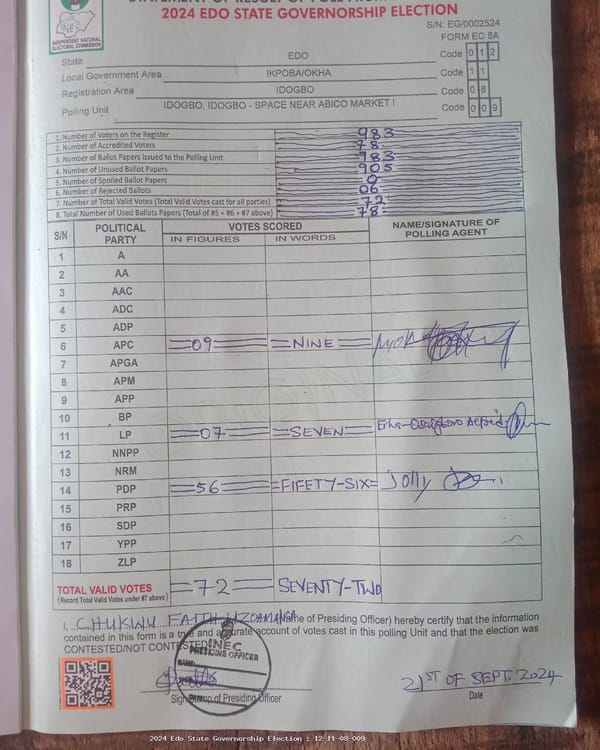 2024 EDO STATE GOVERNORSHIP ELECTION
S/N: EG/0002524
FORM EC 8A
INEC
INDEPENDENT NATIONAL ELECTORAL COMMISSION
State EDO Code 0 1 2
Local Government Area IKPOBA/OKHA Code 1 1
Registration Area IDOGBO Code 0 8
Polling Unit IDOGBO, IDOGBO - SPACE NEAR ABICO MARKET I Code 0 0 9
1. Number of Voters on the Register 983
2. Number of Accredited Voters 78
3. Number of Ballot Papers Issued to the Polling Unit 983
4. Number of Unused Ballot Papers 905
5. Number of Spoiled Ballot Papers 0
6. Number of Rejected Ballots 06
7. Number of Total Valid Votes (Total Valid Votes cast for all parties) 72
8. Total Number of Used Ballots Papers (Total of #5 + #6 + #7 above) 78
S/N POLITICAL PARTY VOTES SCORED NAME/SIGNATURE OF POLLING AGENT
IN FIGURES IN WORDS
1 A
2 AA
3 AAC
4 ADC
5 ADP
6 APC 09 NINE
7 APGA
8 APM
9 APP
10 BP
11 LP 07 SEVEN
12 NNPP
13 NRM
14 PDP 56 FIFETY-SIX Jolly
15 PRP
16 SDP
17 YPP
18 ZLP
TOTAL VALID VOTES 72 SEVENTY-TWO
(Record Total Valid Votes under #7 above)
I, CHUKWU FAITH (Name of Presiding Officer) hereby certify that the information
contained in this form is a true and accurate account of votes cast in this polling Unit and that the election was
CONTESTED/NOT CONTESTED
INEC
PRESIDING OFFICER
NAME:
Sign of Presiding Officer
21ST OF SEPT. 2024
Date
2024 Edo State Governorship Election : 12-11-08-009